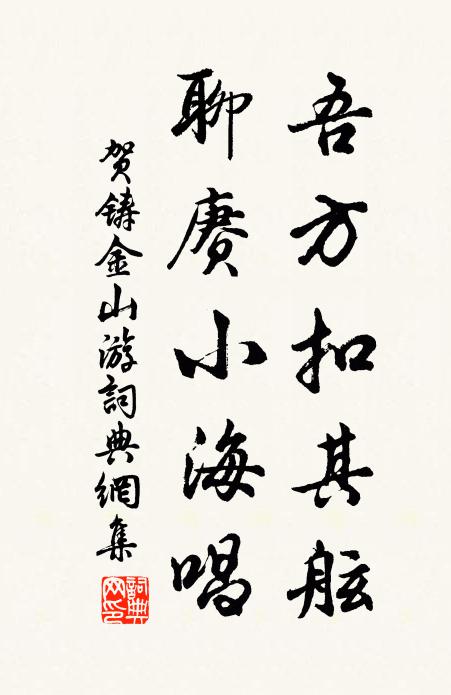 吾方扣其舷
聊赓小海唱
贺铸金山游词典網集
詞典网印